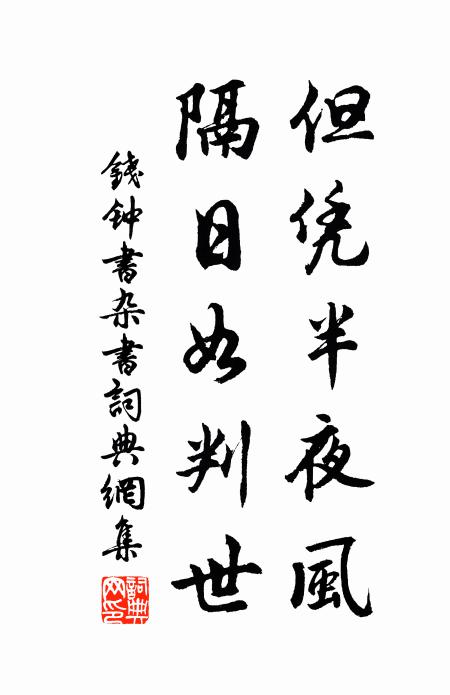 但凭半夜風
隔日如判世
錢钟書杂書詞典網集
詞典網印